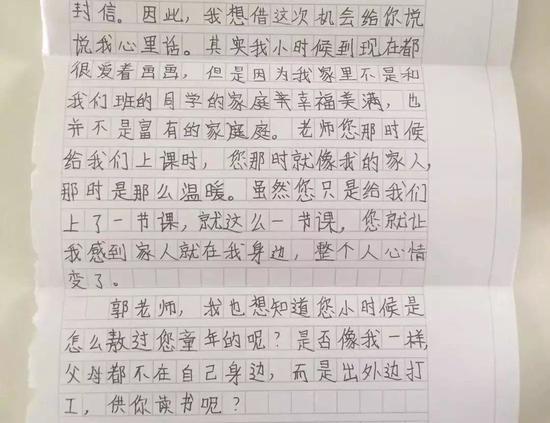 封信。因此，我想借这次机会给你说
说我心里话。其实我小时候到现在都
很爱着画画，但是因为我家里不是和
我们班的同学的家庭幸福美满，也
并不是富有的家庭庭。老师您那时候
给我们上课时，您那时就像我的家人，
那时是那么温暖。虽然您只是给我们
上了一节课，就这么一节课，您就让
我感到家人就在我身边，整个人心情
变了。
郭老师，我也想知道您小时候是
怎么敖过您童年的呢？是否像我一样，
父母都不在自己身边，而是出外边打
工，供你读书呢？